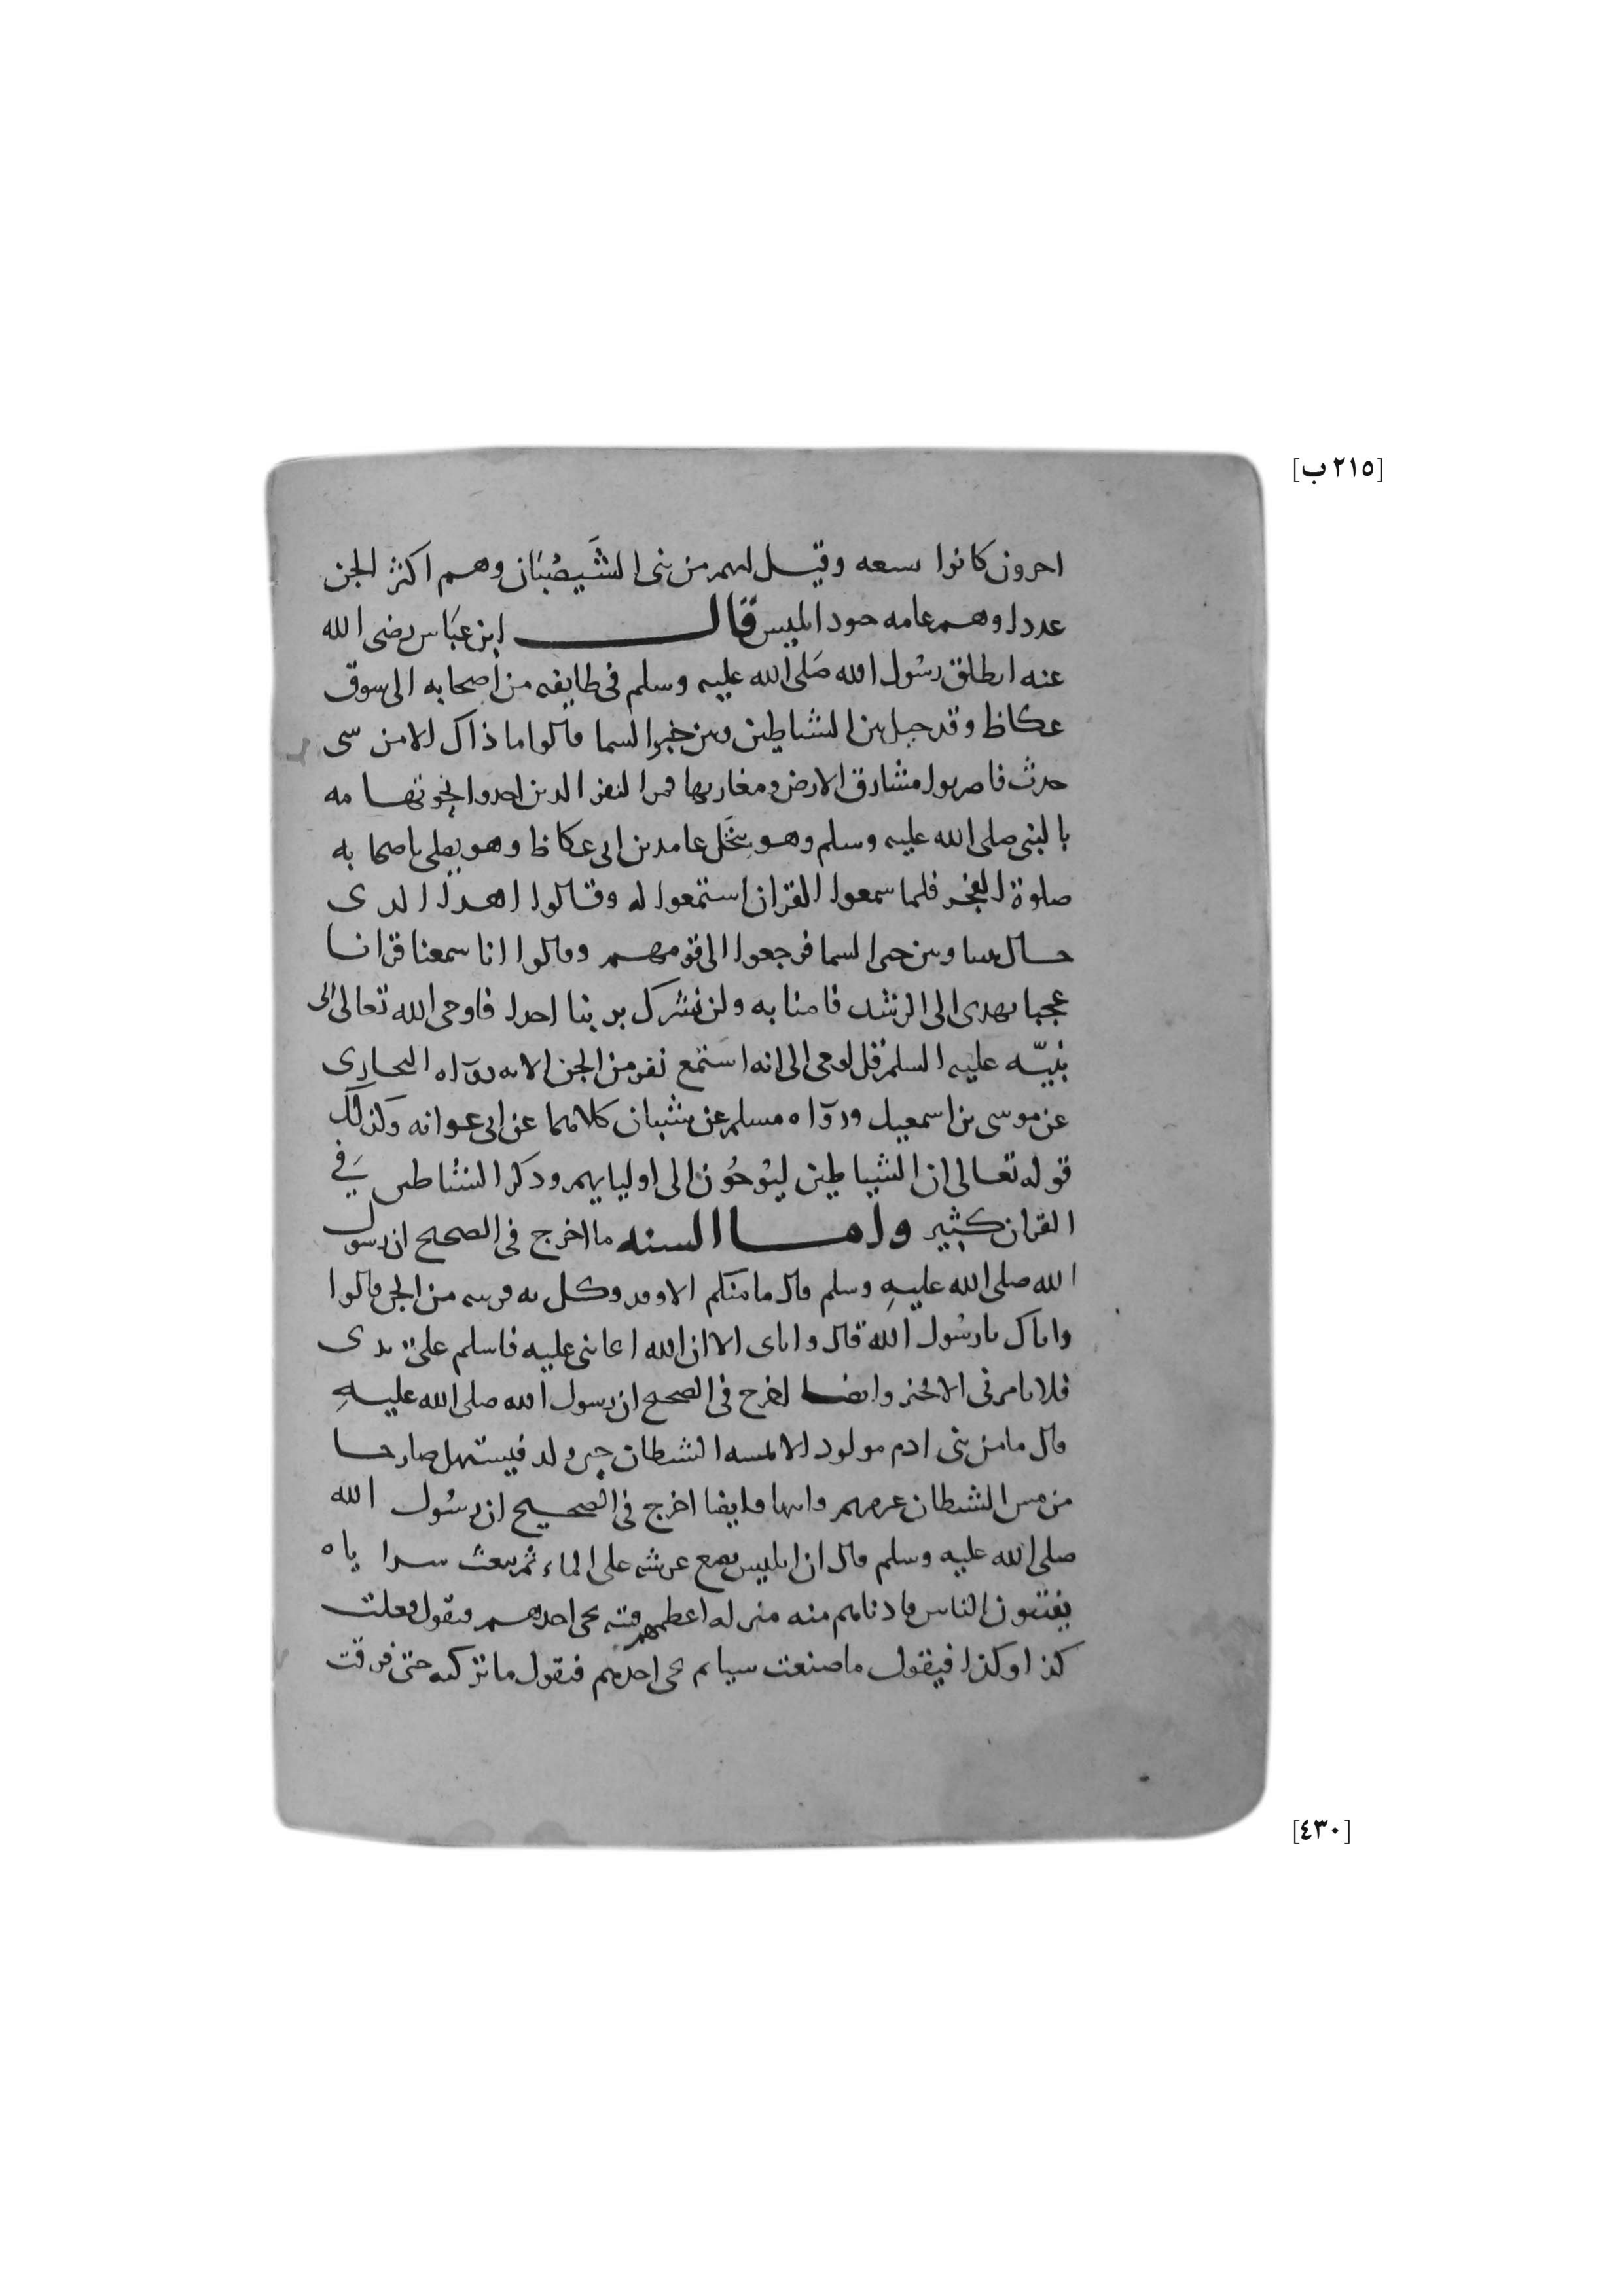 [٢١٥ ب]
احرون كانوا سعه وقيل لهم من بنى الشَّيصُبَان وهم اكثر الجن
عددا وهم عامه حود ابليس قال ابن عبَّاس رضى الله
عنه انطلق رسُول الله صَلى الله عليه وسلم فى طايفه من أصحابه الى سوق
عكاظ وقد حيل بين الشياطين وبين خبر السما قالوا ما ذاك الا من سى
حدث فاصربوا مشارق الارض ومغاربها فمرا لنفر الدين احدوا نحو تهامه
بالنبى صلى الله عليه وسلم وهو بنَخَل عامدين الى عكاظ وهو يصلى باصحابه
صلوة الفجر فلما سمعوا القران استمعوا له وقالوا اهدا الدى
حال بيننا وبين خبر السما فرجعوا الى قومهم وقالوا انا سمعنا قرانا
عجبا يهدى الى الرشد فامنا به ولن نشرك بربنا احدا فاوحى الله تعالى الى
نبيّه عليه السلم قل اوحى الى انه استمع نفر من الجن الايه روَاه البحارى
عن موسى بن اسمعيل وروَاه مسلم عن شيبان كلاهما عن ابى عوانه وكذلك
قوله تعالى ان الشياطين ليُوحُون الى اوليايهم ودكر الشياطين فِي
القران كثير واما السنه ما اخرج فى الصحيح ان رسول
الله صلى الله عليهِ وسلم قال ما منكم الا وقد وكل به قرينه من الجن قالوا
واياك يا رسُول الله قال واياى الا ان الله اعاننى عليه فاسلم على يدى
فلا يامرنى الا بخير وايضا اخرج فى الصحيح ان رسول الله صلى الله عليهِ
قال ما من بنى ادم مولود الا لمسه الشيطان حين ولد فيستهل صارخا
من مس الشيطان غير مريم وابنها وايضا اخرج فى الصحيح ان رسُول الله
صلى الله عليه وسلم قال ان ابليس يضع عرشه على الماء ثم يبعث سراياه
يفتنون الناس فادناهم منه منزله اعظمهم فتنه يجى احدهم فيقول فعلت
كذا وكذا فيقول ما صنعت شيا ثم يجى احدهم فيقول ما تركته حتى فرقت
[٤٣٠]